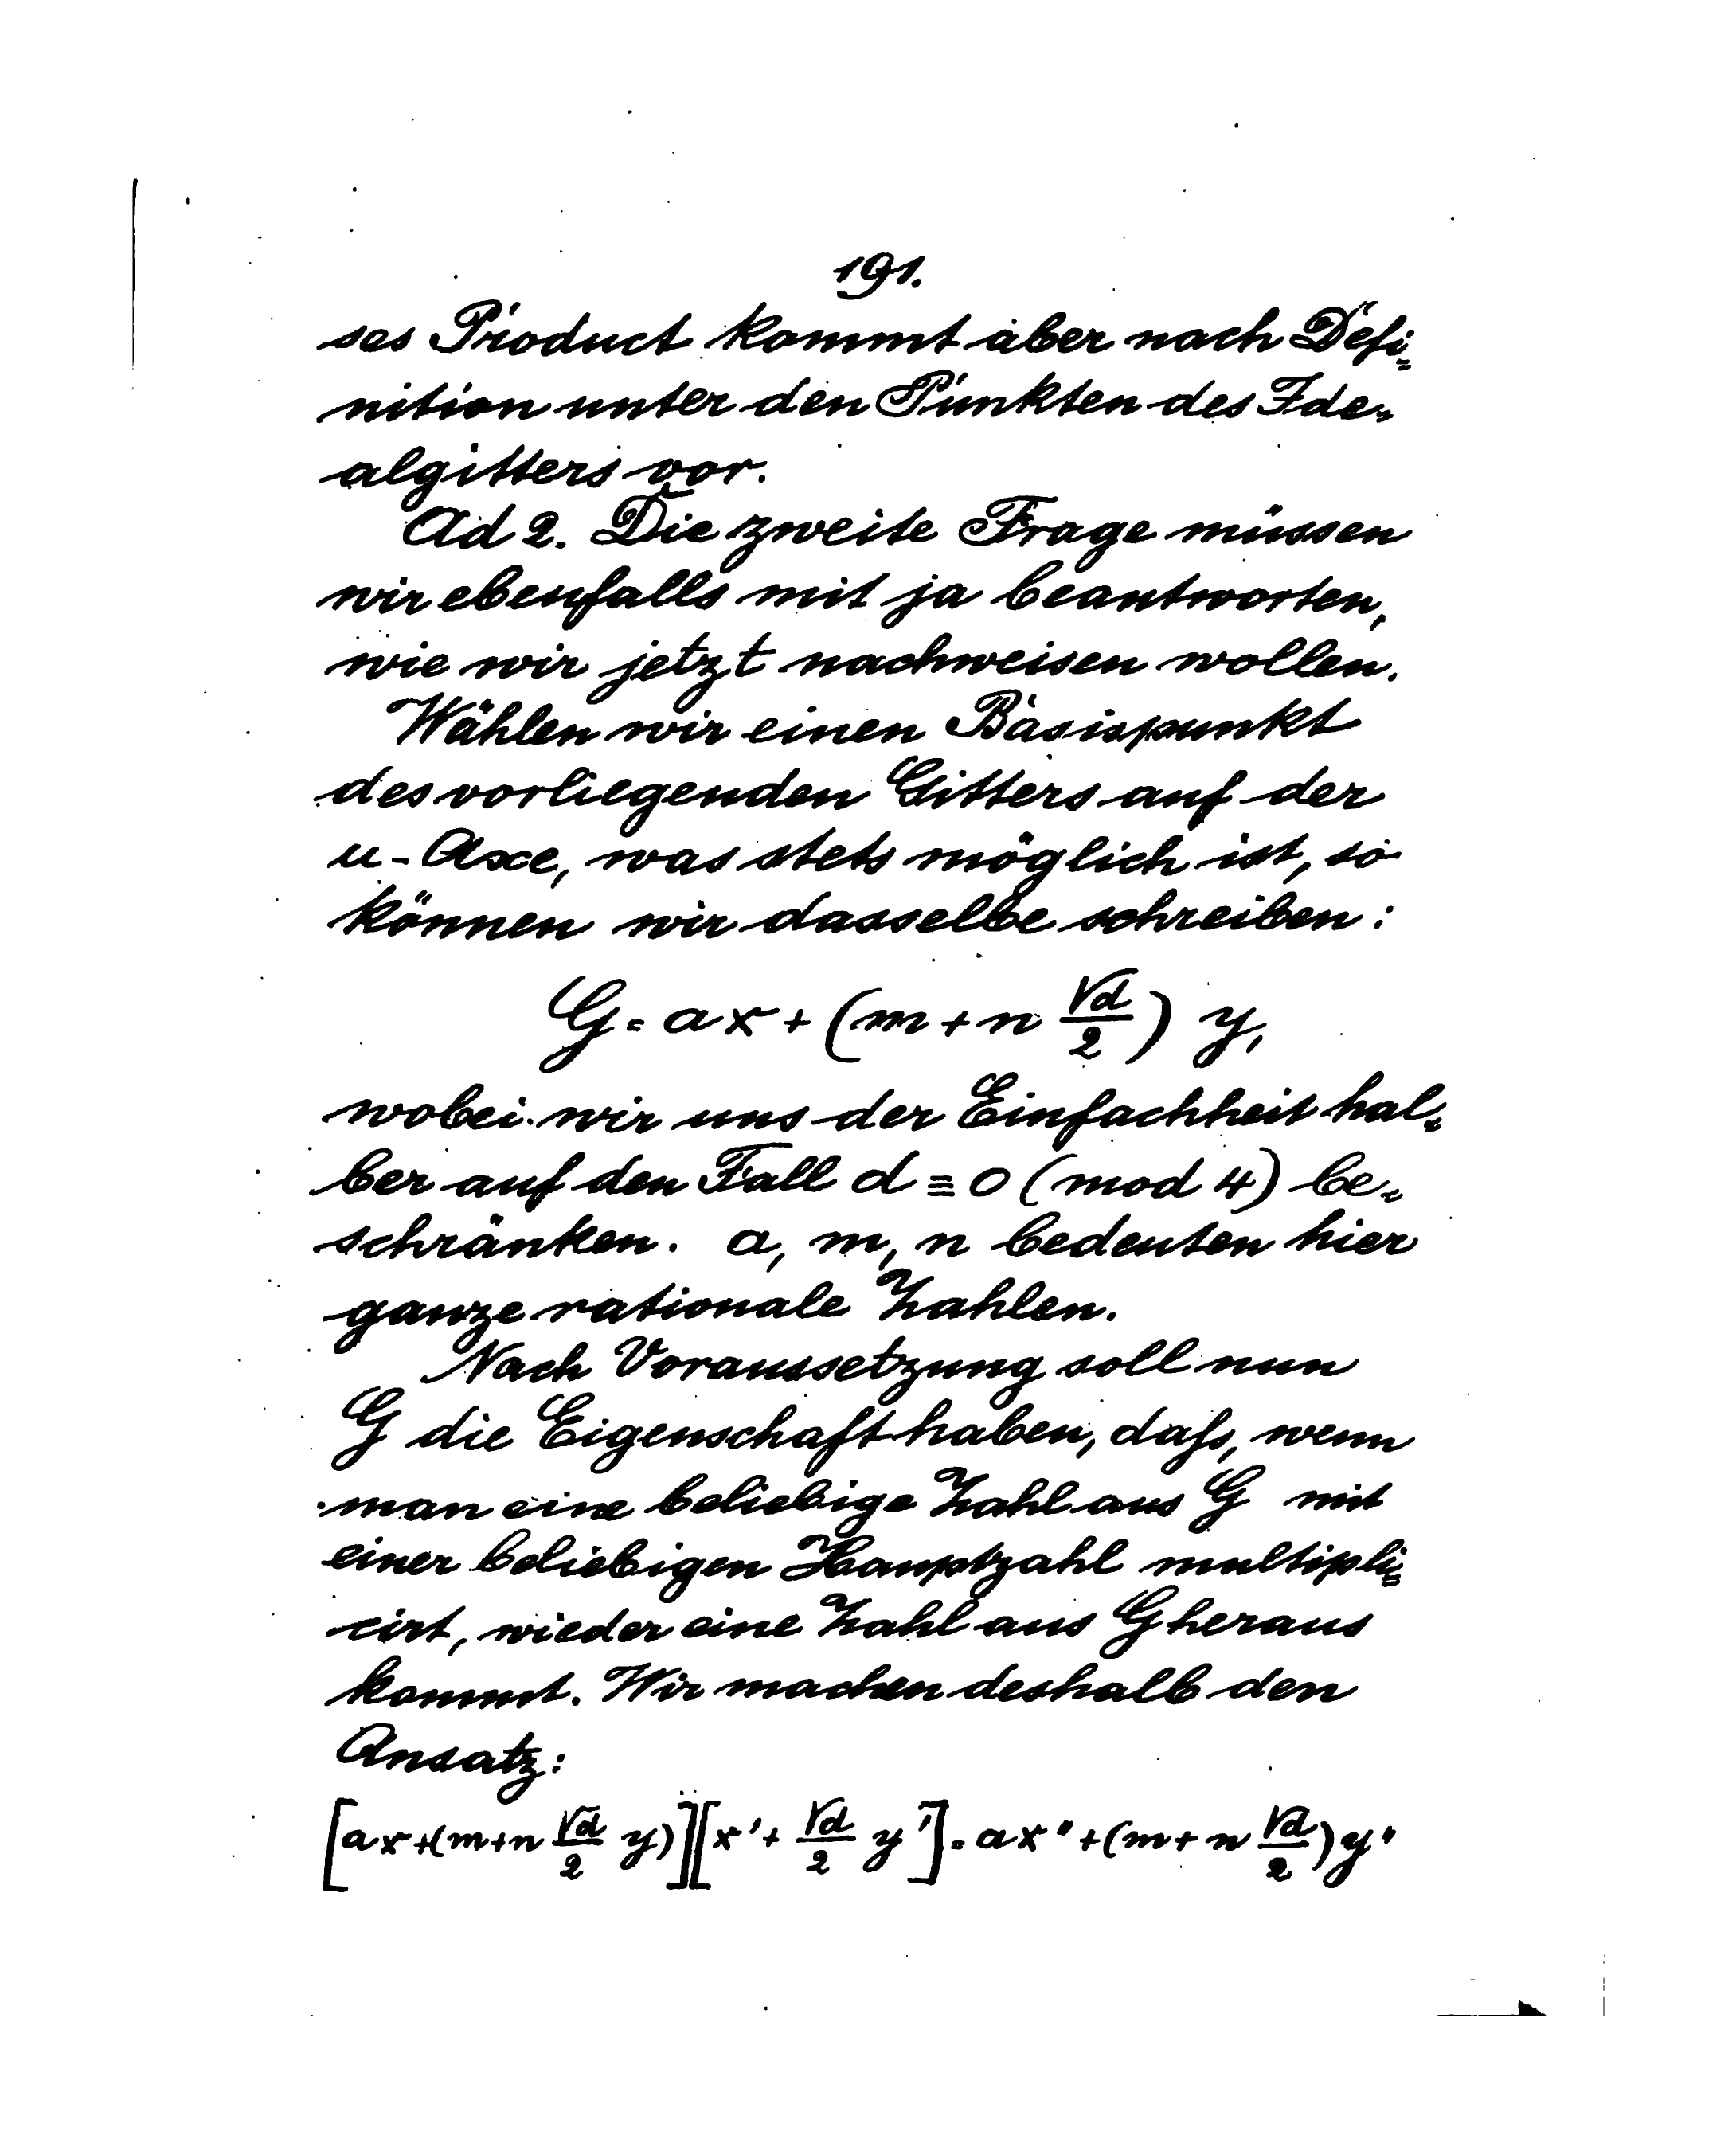 191.
ses Product kommt aber nach Defi=
nition unter den Punkten des Ide=
algitters vor.
Ad 2. Die zweite Frage müssen
wir ebenfalls mit ja beantworten,
wie wir jetzt nachweisen wollen.
Wählen wir einen Basispunkt
des vorliegenden Gitters auf der
u-Axe, was stets möglich ist, so
können wir dasselbe schreiben:
G = ax + (m + n √d/2) y,
wobei wir uns der Einfachheit hal=
ber auf den Fall d ≡ 0 (mod 4) be=
schränken. a, m, n bedeuten hier
ganze rationale Zahlen.
Nach Voraussetzung soll nun
G die Eigenschaft haben, daſs, wenn
man eine beliebige Zahl aus G mit
einer beliebigen Hauptzahl multipli=
cirt, wieder eine Zahl aus G heraus
kommt. Wir machen deshalb den
Ansatz:
[ax+(m+n √d/2 y)][x' + √d/2 y'] = ax" + (m + n √d/2) y"